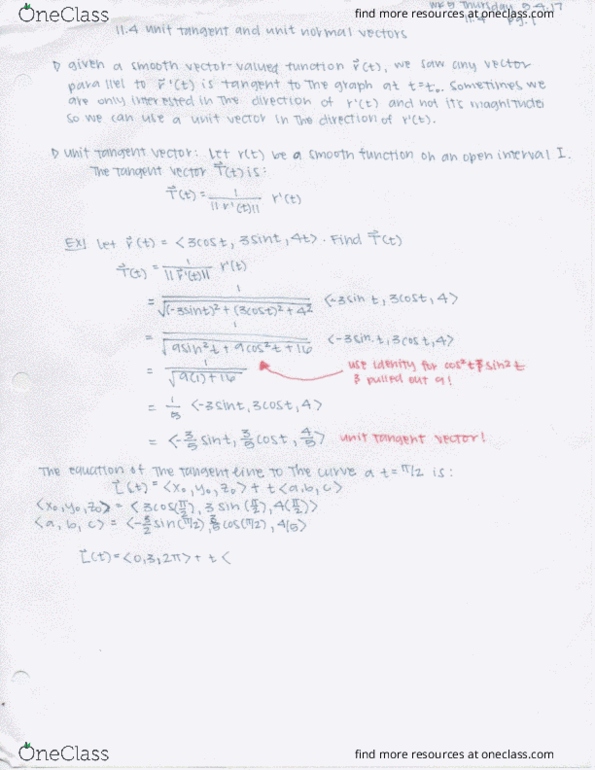 OneClass
find more resources at oneclass.com
Thursday
11.4 unit tangent and unit normal vectors
▷ given a smooth vector-valued function r⃗(t), we saw any vector
parallel to r⃗'(t) is tangent to the graph at t=t₀. Sometimes we
are only interested in the direction of r'(t) and not it's magnitude
so we can use a unit vector in the direction of r'(t).
▷ unit tangent vector: Let r(t) be a smooth function on an open interval I.
The tangent vector T⃗(t) is:
T⃗(t) = 1/||r'(t)|| r'(t)
Ex) Let r⃗(t) = <3cost, 3sint, 4t>. Find T⃗(t)
T⃗(t) = 1/||r⃗'(t)|| r'(t)
= 1/√((-3sint)² + (3cost)² + 4²) <-3sin t, 3cost, 4>
= 1/√(9sin²t + 9cos²t + 16) <-3sin t, 3cos t, 4>
= 1/√(9(1) + 16)
use identity for cos²t & sin²t
& pulled out 9!
= 1/5 <-3sint, 3cost, 4>
= <-3/5 sint, 3/5 cost, 4/5> unit tangent vector!
The equation of the tangent line to the curve a t = π/2 is:
L⃗(t) = <x₀, y₀, z₀> + t<a, b, c>
<x₀, y₀, z₀> = <3cos(π/2), 3 sin (π/2), 4(π/2)>
<a, b, c> = sin(π/2), 3/5 cos(π/2), 4/5>
L⃗(t) = <0, 3, 2π> + t <
OneClass
find more resources at oneclass.com